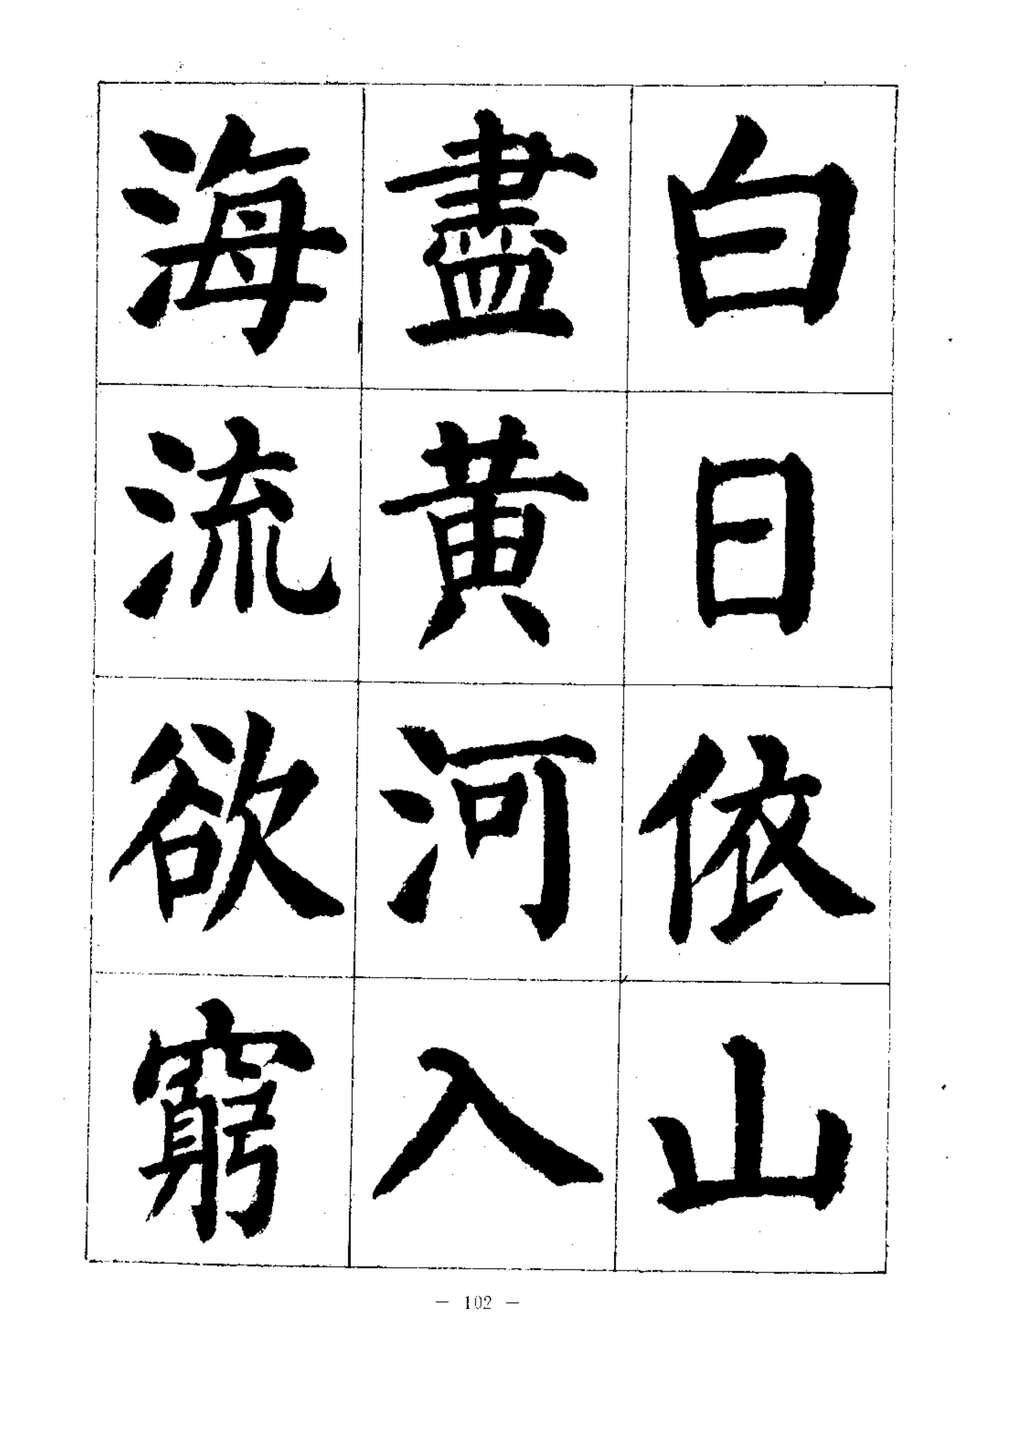 白日依山
盡黄河入
海流欲窮
— 102 —